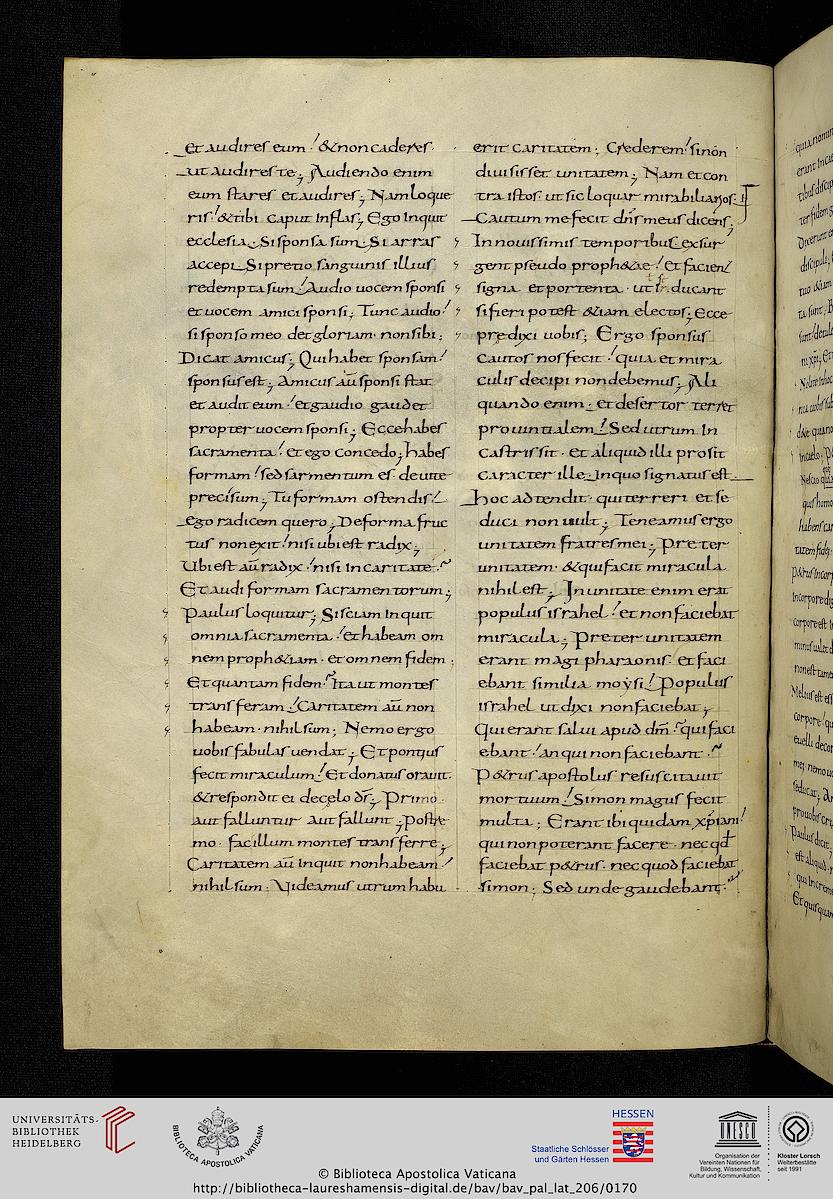 et audires eum! & non caderes.
ut audires te; Audiendo enim
eum stares et audires; Nam loque
ris! & tibi caput inflas; Ego inquit
ecclesia. Si sponsa sum. Si arras
accepi. Si pretio sanguinis illius
redempta sum! Audio uocem sponsi
et uocem amici sponsi; Tunc audio!
si sponso meo det gloriam. non sibi;
Dicat amicus; Qui habet sponsam!
sponsus est; Amicus aū sponsi stat
et audit eum! et gaudio gaudet
propter uocem sponsi; Ecce habes
sacramenta! et ego concedo; habes
formam! sed sarmentum es. de uite
precisum; Tu formam ostendis!
ego radicem quero; De forma fruc
tus non exit! nisi ubi est radix;
Ubi est aū radix. nisi in caritate.
Et audi formam sacramentorum;
Paulus loquitur; Si sciam inquit
omnia sacramenta! et habeam om
nem proph&iam. et omnem fidem;
Et quantam fidem? Ita ut montes
transferam! Caritatem aū non
habeam. nihil sum; Nemo ergo
uobis fabulas uendat; Et pontius
fecit miraculum! Et donatus orauit.
& respondit ei de celo d̄s; Primo
aut falluntur aut fallunt; Postre
mo. fac illum montes transferre;
Caritatem aū inquit non habeam!
nihil sum; Uideamus utrum habu
erit caritatem; Crederem! si non
diuisisset unitatem; Nam et con
tra istos. ut sic loquar mirabiliarios.
Cautum me fecit dn̄s meus dicens;
In nouissimis temporibus exsur
gent pseudo proph&ae! Et facient
signa et portenta. ut ducant
si fieri potest &iam electos; Ecce
predixi uobis; Ergo sponsus
cautos nos fecit! quia et mira
culis decipi non debemus; Ali
quando enim. et desertor terret
prouintialem! Sed utrum in
castris sit. Et aliquid illi prosit
caracter ille. In quo signatus est.
hoc adtendit. qui terreri et se
duci non uult; Teneamus ergo
unitatem fratres mei; Preter
unitatem. & qui facit miracula
nihil est; In unitate enim erat
populus israhel! et non faciebat
miracula; Preter unitatem
erant magi pharaonis. et faci
ebant similia moysi! Populus
israhel ut dixi non faciebat;
Qui erant salui apud dm̄. qui faci
ebant! an qui non faciebant.
P&rus apostolus resuscitauit
mortuum! Simon magus fecit
multa; Erant ibi quidam xp̄iani!
qui non poterant facere. nec qđ
faciebat p&rus. nec quod faciebat
simon; Sed unde gaudebant.
UNIVERSITÄTS-
BIBLIOTHEK
HEIDELBERG
BIBLIOTHECA APOSTOLICA VATICANA
HESSEN
Staatliche Schlösser
und Gärten Hessen
UNESCO
Organisation der
Vereinten Nationen für
Bildung, Wissenschaft,
Kultur und Kommunikation
Kloster Lorsch
Welterbestätte
seit 1991
© Biblioteca Apostolica Vaticana
http://bibliotheca-laureshamensis-digital.de/bav/bav_pal_lat_206/0170